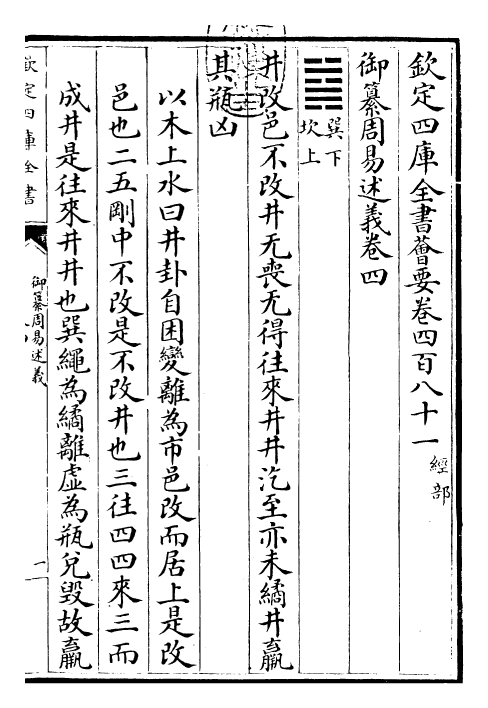 欽定四庫全書薈要卷四百八十一 經部
御纂周易述義卷四
䷯ 巽下
坎上
井改邑不改井无喪无得往來井井汔至亦未繘井羸
其瓶凶
以木上水曰井卦自困變離為市邑改而居上是改
邑也二五剛中不改是不改井也三往四四來三而
成井是往來井井也巽繩為繘離虛為瓶兌毀故羸
欽定四庫全書
御纂周易述義